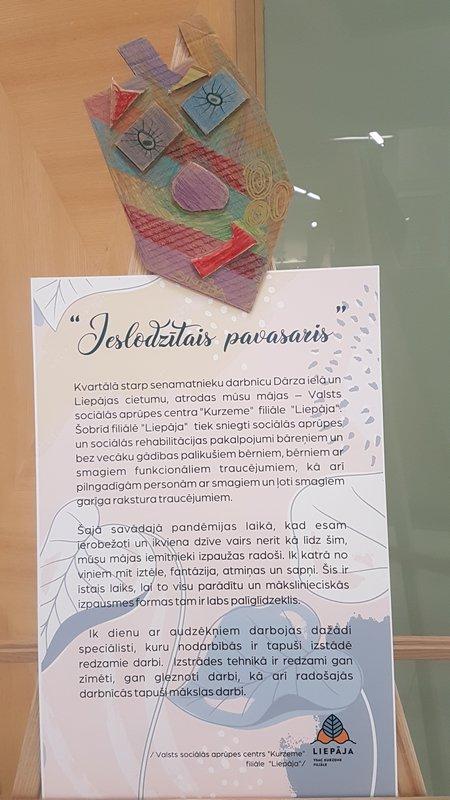 “Ieslodzītais pavasaris”
Kvartālā starp senamatnieku darbnīcu Dārza ielā un
Liepājas cietumu, atrodas mūsu mājas – Valsts
sociālās aprūpes centra "Kurzeme" filiāle "Liepāja".
Šobrīd filiālē "Liepāja" tiek sniegti sociālās aprūpes
un sociālās rehabilitācijas pakalpojumi bāreņiem un
bez vecāku gādības palikušiem bērniem, bērniem ar
smagiem funkcionāliem traucējumiem, kā arī
pilngadīgām personām ar smagiem un ļoti smagiem
garīga rakstura traucējumiem.
Šajā savādajā pandēmijas laikā, kad esam
ierobežoti un ikviena dzīve vairs nerit kā līdz šim,
mūsu mājas iemītnieki izpaužas radoši. Ik katrā no
viņiem mīt iztēle, fantāzija, atmiņas un sapņi. Šis ir
īstais laiks, lai to visu parādītu un mākslinieciskās
izpausmes formas tam ir labs palīglīdzeklis.
Ik dienu ar audzēkņiem darbojas dažādi
speciālisti, kuru nodarbībās ir tapuši izstādē
redzamie darbi. Izstrādes tehnikā ir redzami gan
zīmēti, gan gleznoti darbi, kā arī radošajās
darbnīcās tapuši mākslas darbi.
/ Valsts sociālās aprūpes centrs "Kurzeme"
filiāle "Liepāja"/
LIEPĀJA
VSAC KURZEME
FILIĀLE